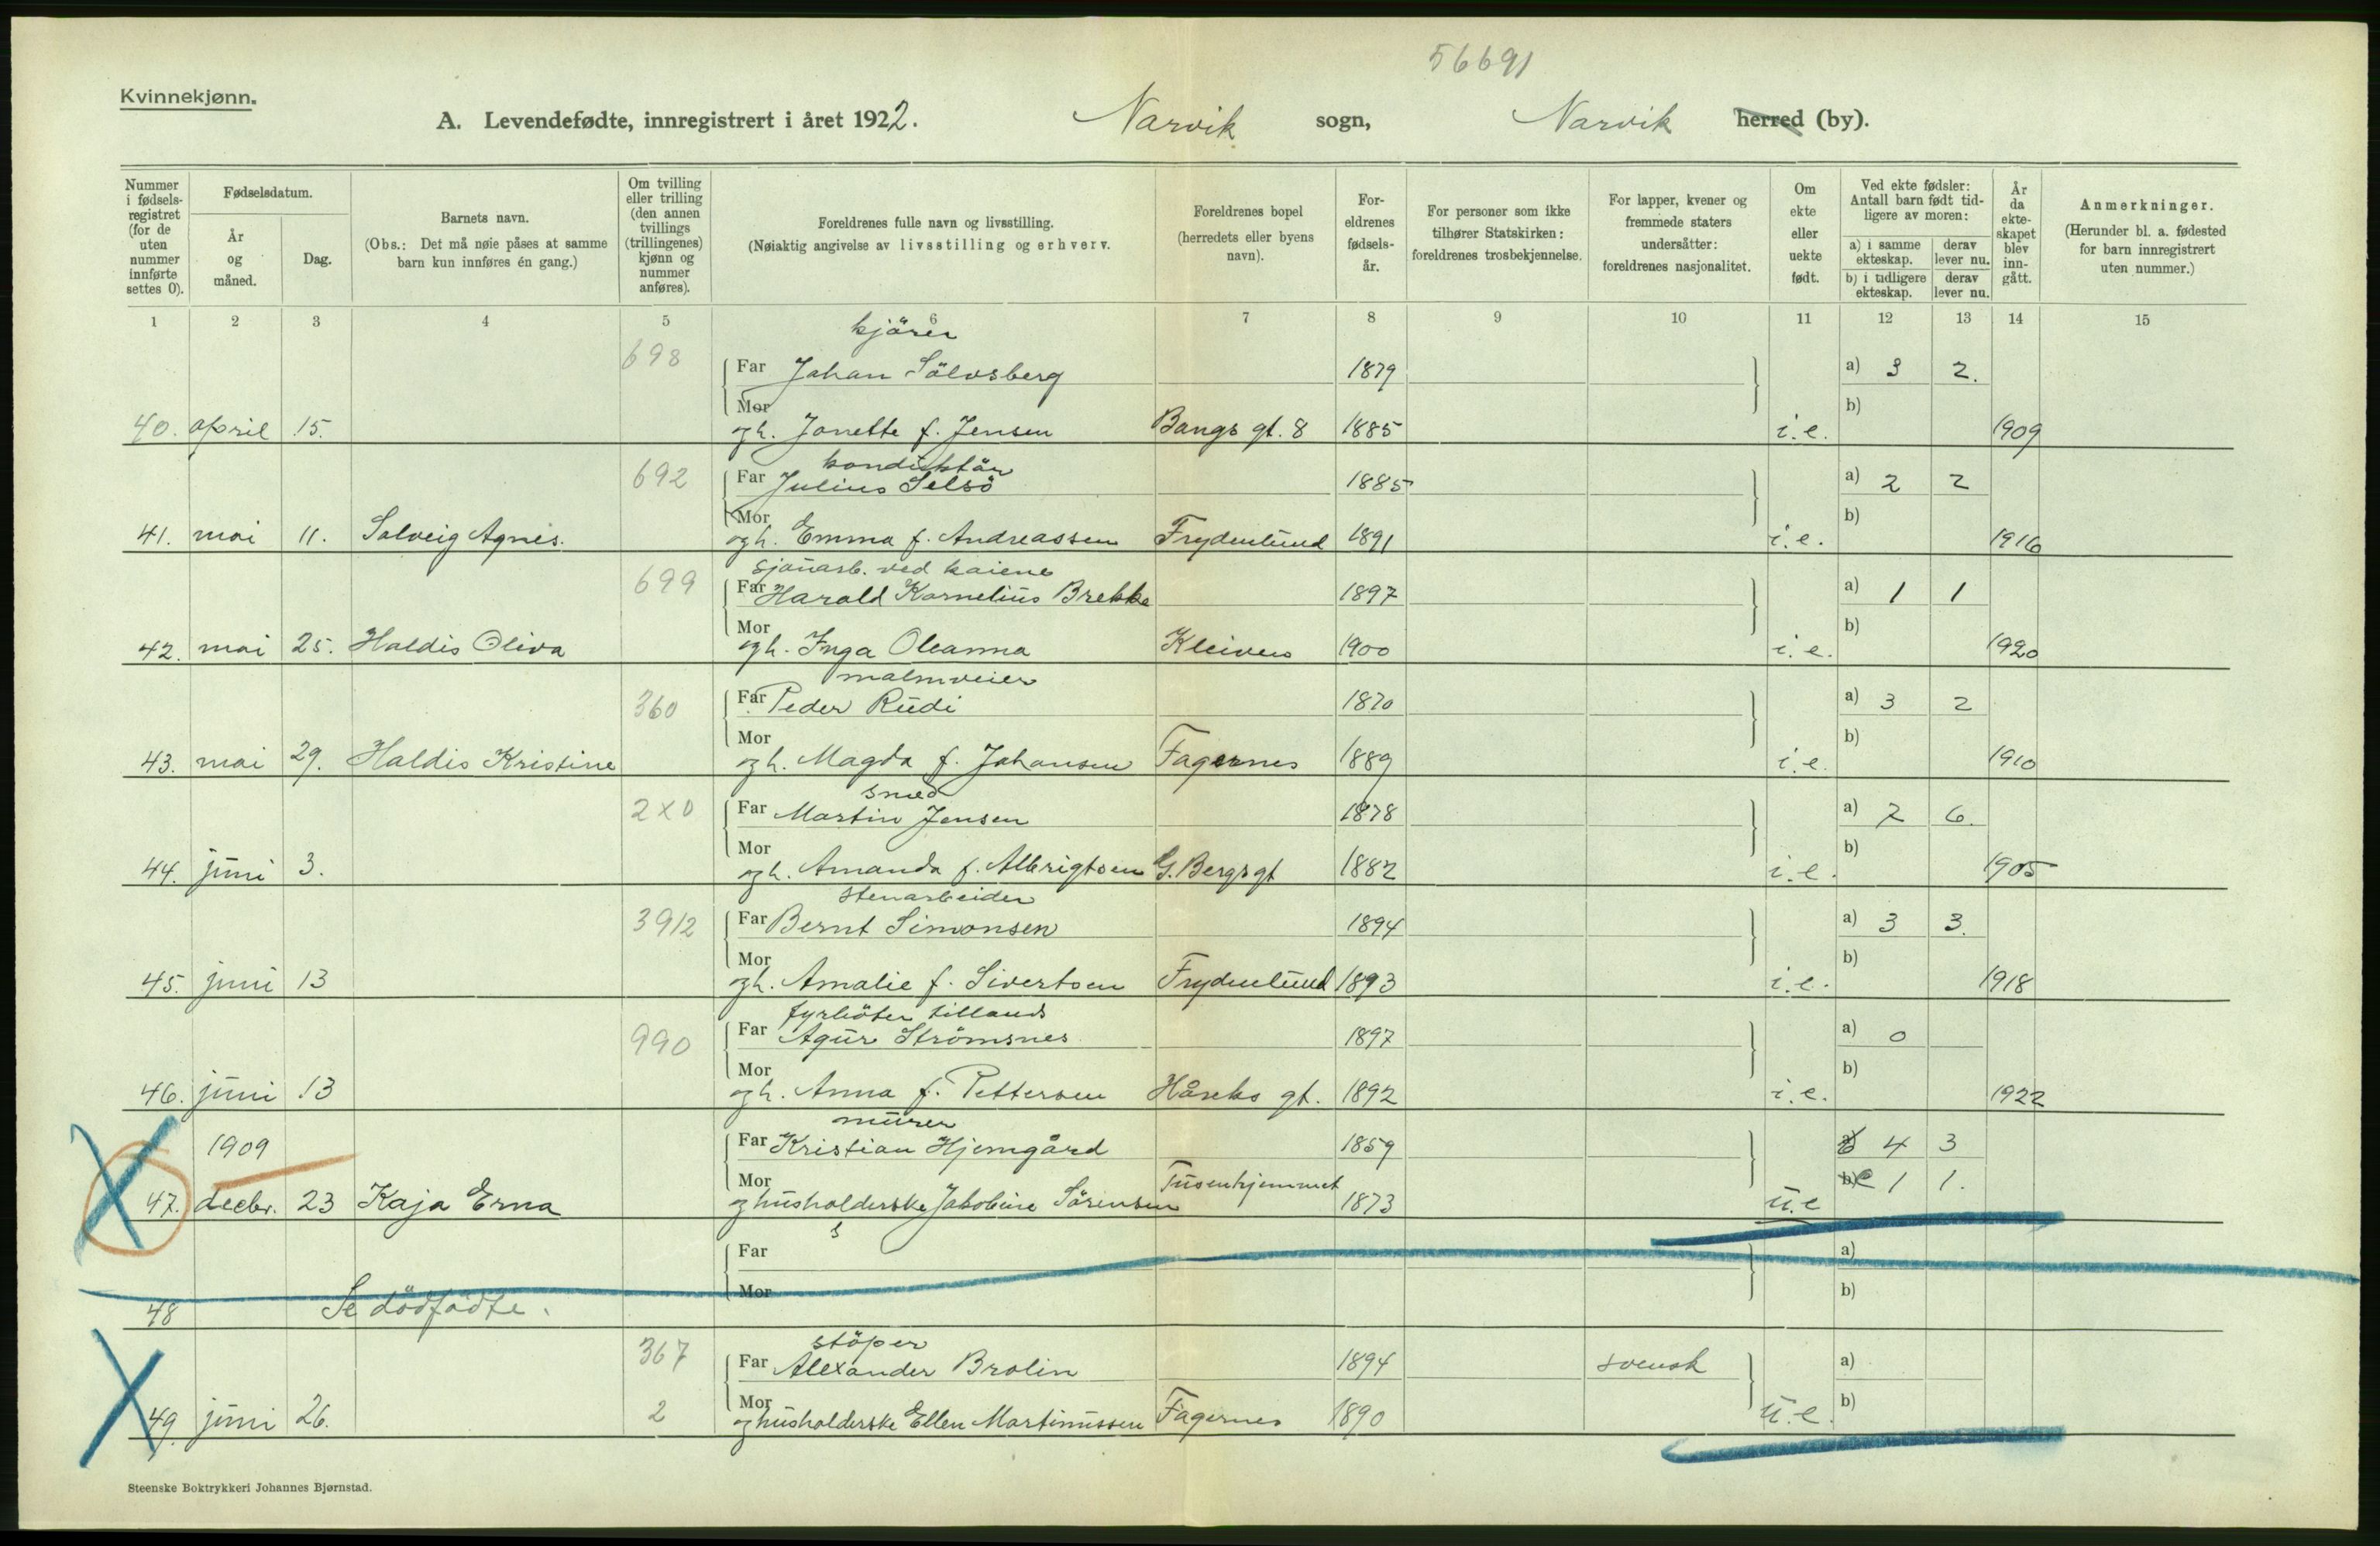 56691
Kvinnekjønn.
A. Levendefødte, innregistrert i året 1922. Narvik sogn, Narvik herred (by).
Nummer i fødsels-registret (for de uten nummer innførte settes 0).
Fødselsdatum.
År og måned.
Dag.
Barnets navn.
(Obs.: Det må nøie påses at samme barn kun innføres én gang.)
Om tvilling eller trilling (den annen tvillings (trillingenes) kjønn og nummer anføres).
Foreldrenes fulle navn og livsstilling.
(Nøiaktig angivelse av livsstilling og erhverv.
Foreldrenes bopel (herredets eller byens navn).
For-eldrenes fødsels-år.
For personer som ikke tilhører Statskirken: foreldrenes trosbekjennelse.
For lapper, kvener og fremmede staters undersåtter: foreldrenes nasjonalitet.
Om ekte eller uekte født.
Ved ekte fødsler: Antall barn født tid-ligere av moren:
a) i samme ekteskap. derav lever nu.
b) i tidligere ekteskap. derav lever nu.
År da ekte-skapet blev inn-gått.
Anmerkninger.
(Herunder bl. a. fødested for barn innregistrert uten nummer.)
1 2 3 4 5 6 7 8 9 10 11 12 13 14 15
kjörer
698 Far Johan Sölvsberg 1879 a) 3 2.
Mor b)
40. april 15. og h. Jonette f. Jensen Bangs gt. 8 1885 i.e. 1909
konduktör
692 Far Julius Selsö 1885 a) 2 2
Mor b)
41. mai 11. Solveig Agnes. og h. Emma f. Andreassen Frydenlund 1891 i.e. 1916
sjauarb. ved kaiene
699 Far Harald Kornelius Brekke 1897 a) 1 1
Mor b)
42. mai 25. Haldis Oliva og h. Inga Oleanna Kleiven 1900 i.e. 1920
malmveier
360 Far Peder Rudi 1870 a) 3 2
Mor b)
43. mai 29. Haldis Kristine og h. Magda f. Johansen Fagernes 1889 i.e. 1910
smed
2x0 Far Martin Jensen 1878 a) 7 6.
Mor b)
44. juni 3. og h. Amanda f. Albrigtsen G. Bergs gt 1882 i.e. 1905
stenarbeider
3912 Far Bernt Simonsen 1894 a) 3 3.
Mor b)
45. juni 13 og h. Amalie f. Sivertsen Frydenlund 1893 i.e. 1918
fyrböter tillands
990 Far Agur Strömsnes 1897 a) 0
Mor b)
46. juni 13 og h. Anna f. Pettersen Håreks gt. 1892 i.e. 1922
murer
1909 Far Kristian Hjemgård 1859 4 3
Mor Tusenhjemmet b) 1 1.
47. decbr. 23 Kaja Erna og husholderske Jakobine Sörensen 1873 u.e
s
Far a)
Mor b)
48 Se dödfödte.
stöper
367 Far Alexander Brolin 1894 svensk a)
2 Mor b)
49. juni 26. og husholderske Ellen Martinussen Fagernes 1890 u.e.
Steenske Boktrykkeri Johannes Bjørnstad.